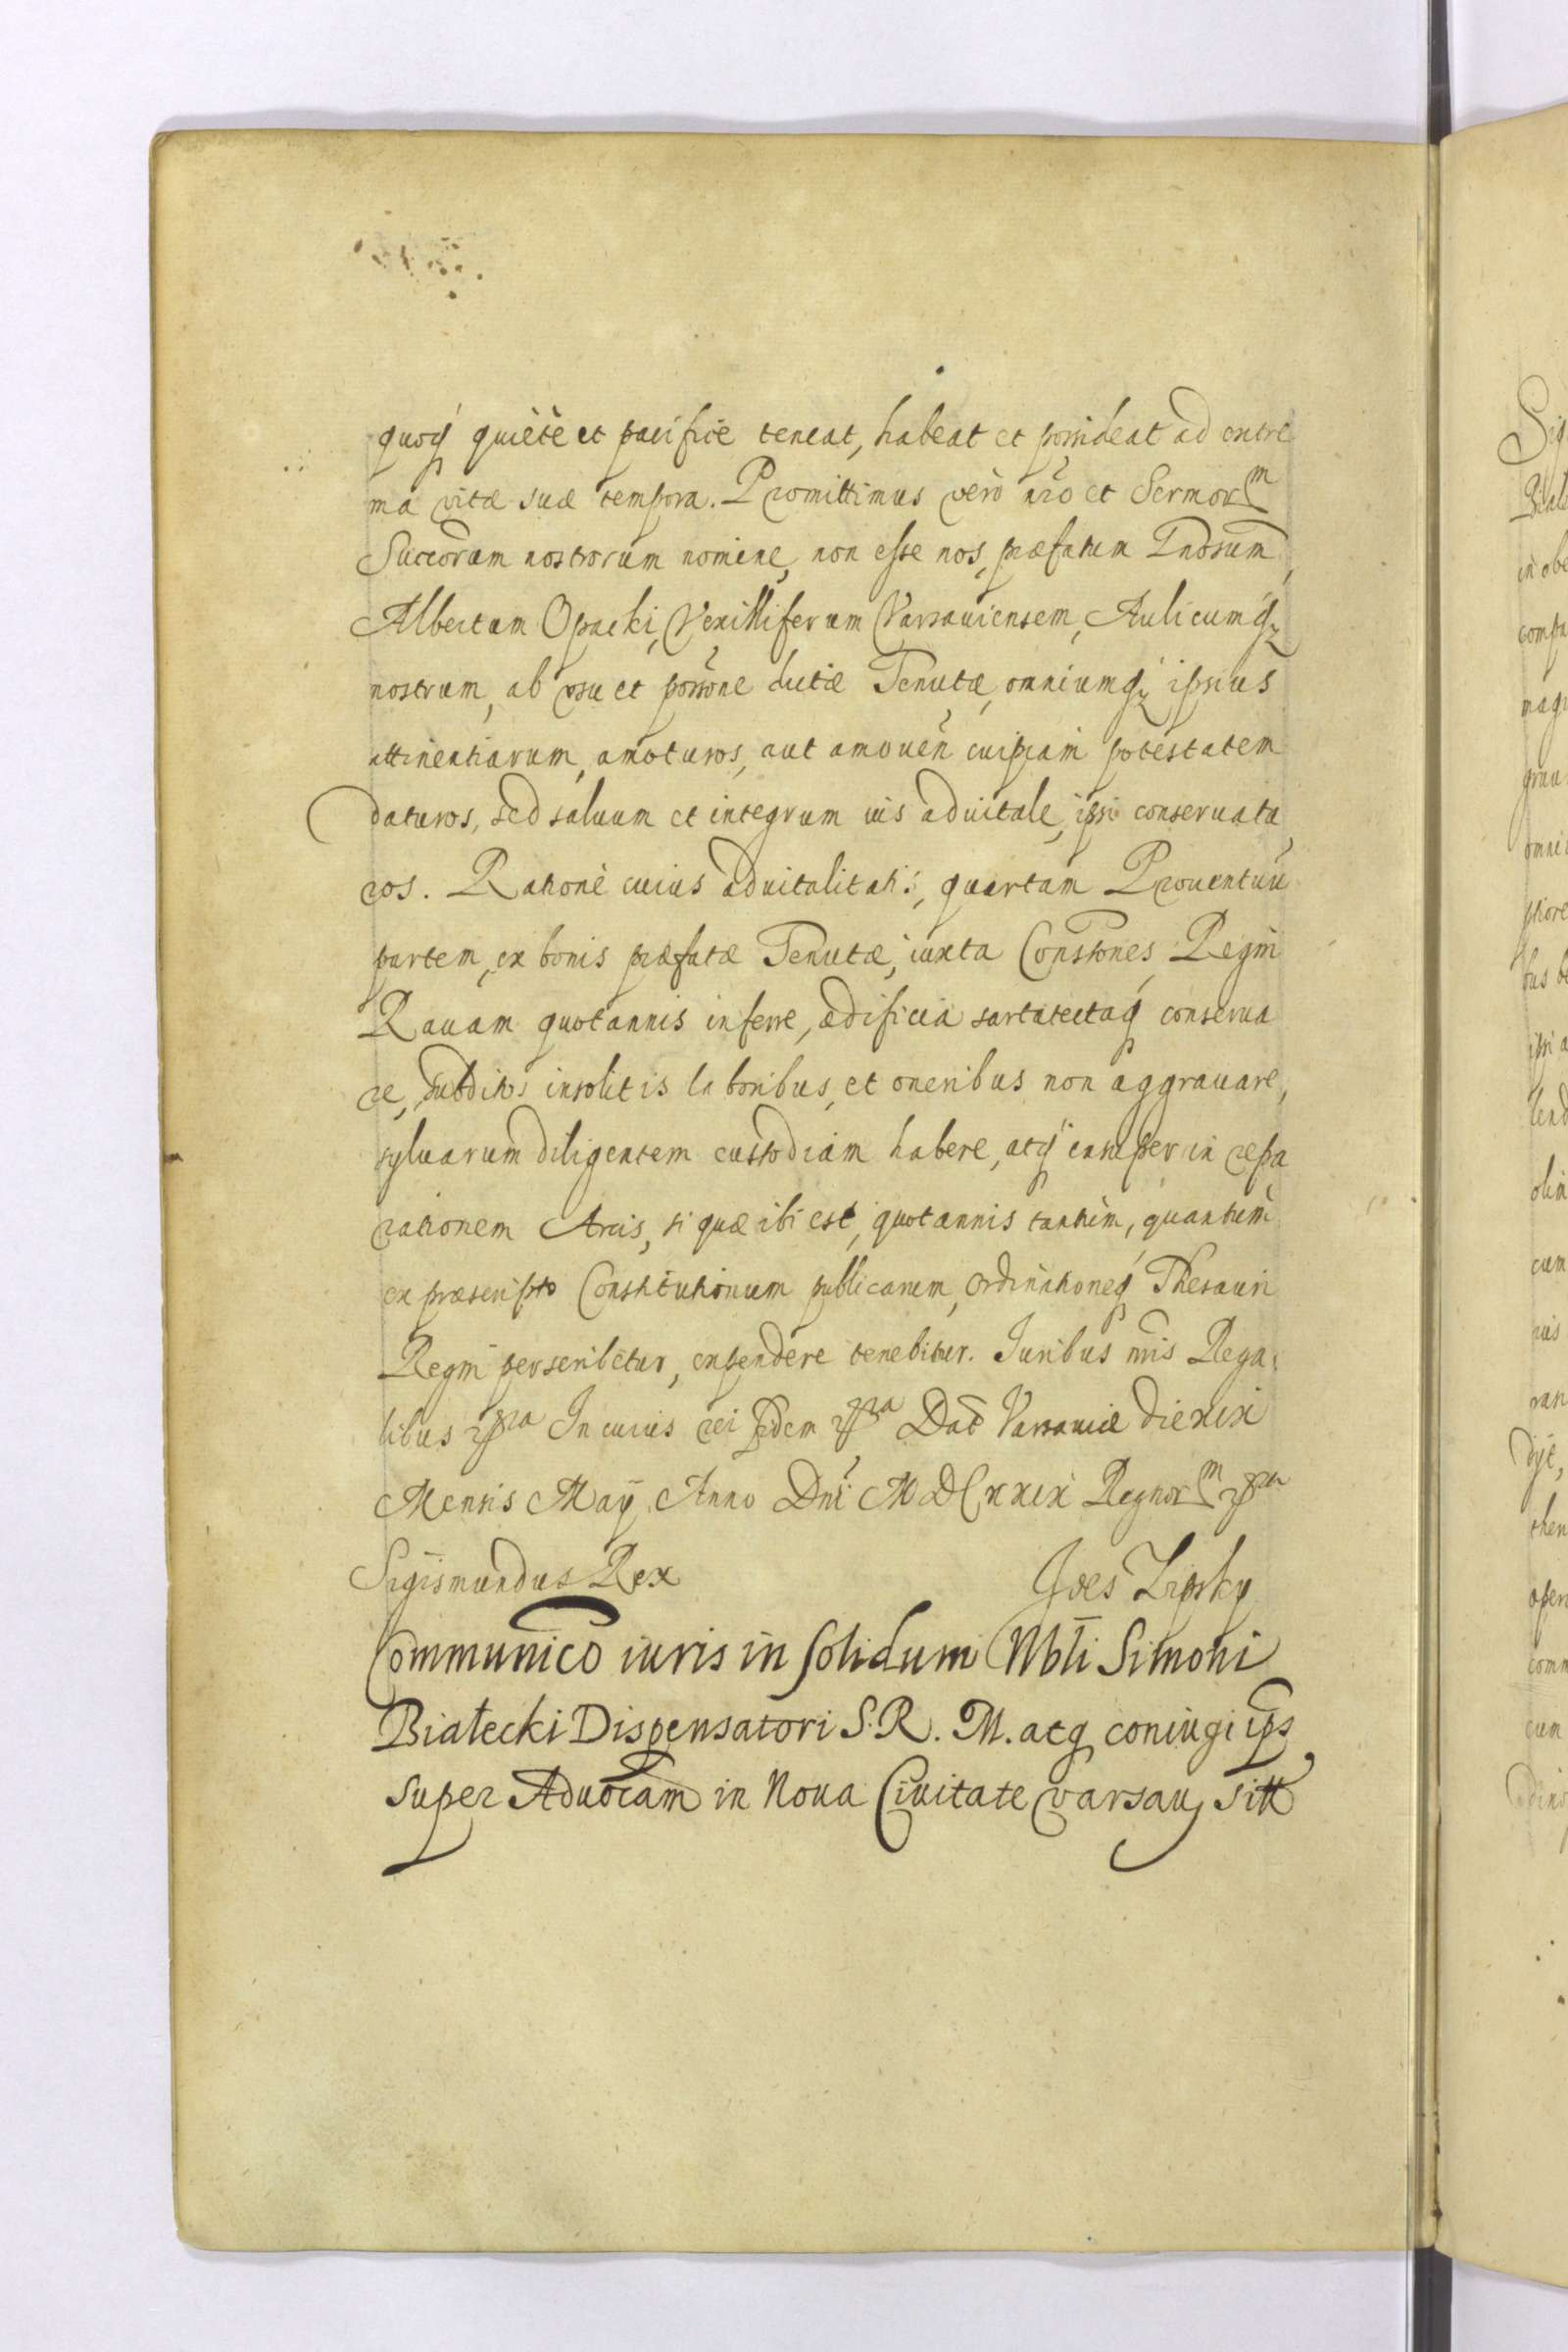 quoq quiète et pacifice teneat, habeat et possideat ad extre
ma vitæ suæ tempora. Promittimus verò nro et Sermor͡m
Succorum nostrorum nomine, non esse nos, præfatum Gnosum
Albertum Opacki, Vexilliferum Varsauiensem, Aulicumq;
nostrum, ab vsu et possone dictæ Tenutæ, omniumq; ipsius
attinentiarum, amoturos, aut amouen cuipiam potestatem
daturos, sed saluum et integrum ius aduitale, ipsi conseruatu
ros. Ratione cuius aduitalitatis, quartam Prouentuu
partem, ex bonis præfatæ Tenutæ, iuxta Constones Regni
Rauam quotannis inferre, ædificia sartatectaq conserua
re, subditos insolitis laboribus, et oneribus non aggrauare,
syluarum diligentem custodiam habere, atq semper in repa
rationem Arcis, si quæ ibi est, quotannis tantum, quantum
ex præscripto Constitutionum publicarum, ordinationeq Thesauri
Regni perscribetur, expendere tenebitur. Iuribus nris Rega
libus In cuius rei fidem Dat Varsauiæ die xix
Mensis Maij Anno Dni MDCxxix Regnor͡m
Sigismundus Rex Joes Lipsky
Communico iuris in solidum Nbli Simoni
Białecki Dispensatori S. R. M. atq coniugi ips
super Aduocam in Noua Ciuitate Varsau sitt